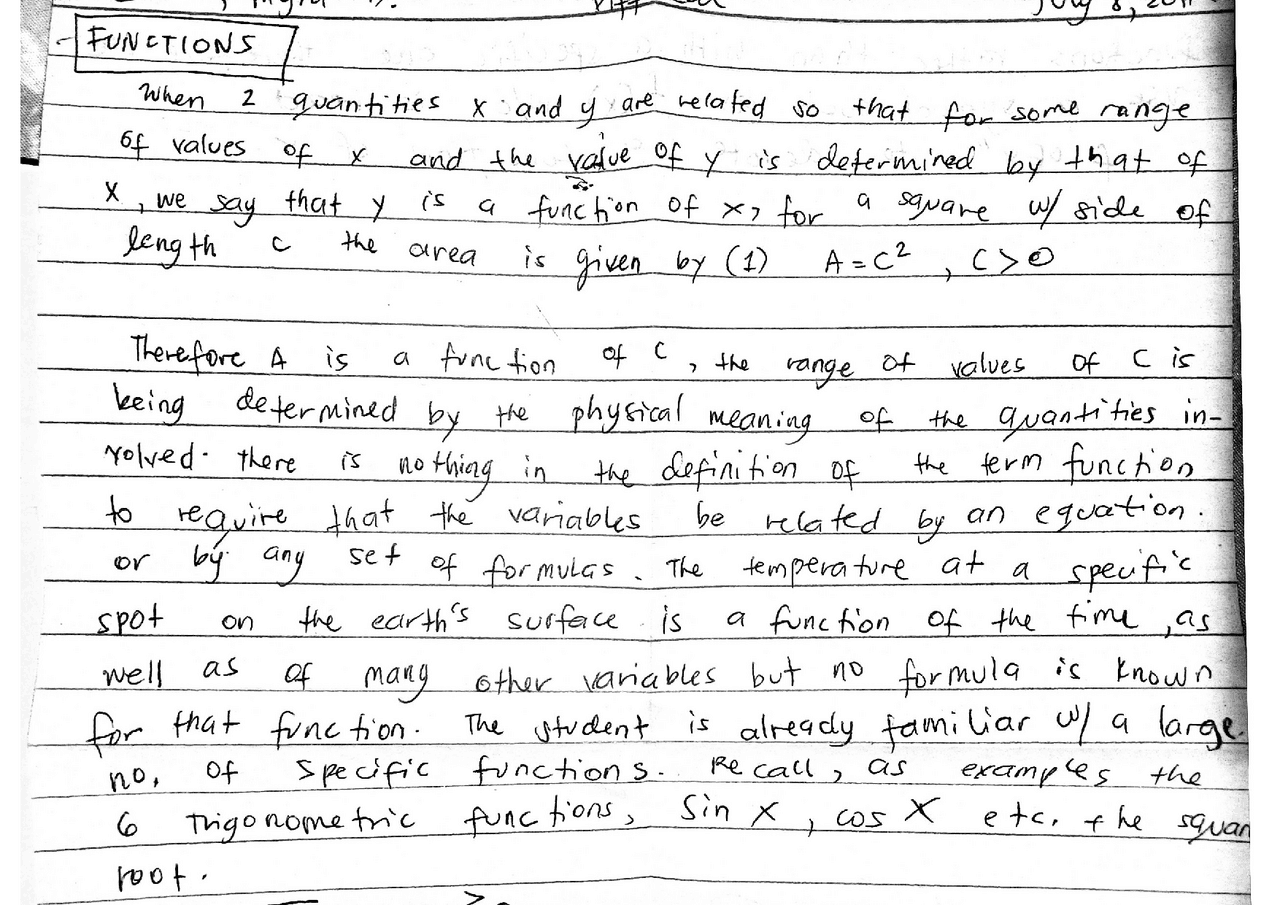 July 8, 201
FUNCTIONS
When 2 quantities x and y are related so that for some range
of values of x and the value of y is determined by that of
x, we say that y is a function of x, for a square w/ side of
length c the area is given by (1) A = c², c > 0
Therefore A is a function of c, the range of values of c is
being determined by the physical meaning of the quantities in-
volved. there is nothing in the definition of the term function
to require that the variables be related by an equation.
or by any set of formulas. The temperature at a specific
spot on the earth's surface is a function of the time, as
well as of many other variables but no formula is known
for that function. The student is already familiar w/ a large
no. of specific functions. Recall, as examples the
6 Trigonometric functions, Sin x, cos x etc. the squar
root.